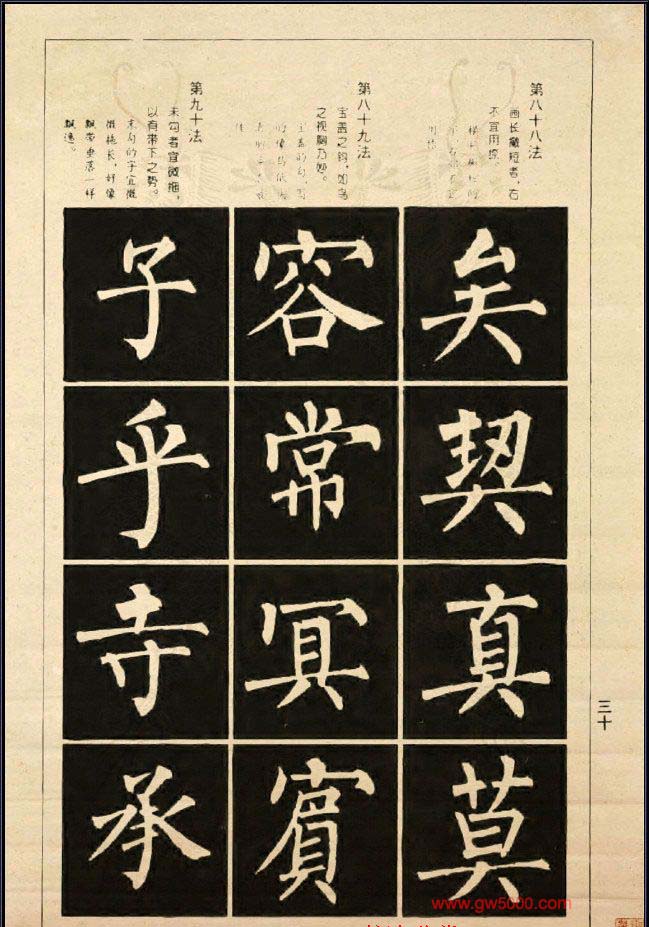 第八十八法
画长撇短者，右
不宜用捺。
矣
契
真
莫
第八十九法
宝盖之钩，如鸟
之视胸乃妙。
容
常
冥
賓
第九十法
末勾者宜微拖，
以有带下之势。
末勾的字宜微
微拖长，好像
飘带垂落一样
飘逸。
子
乎
寺
承
三十
www.gw5000.com